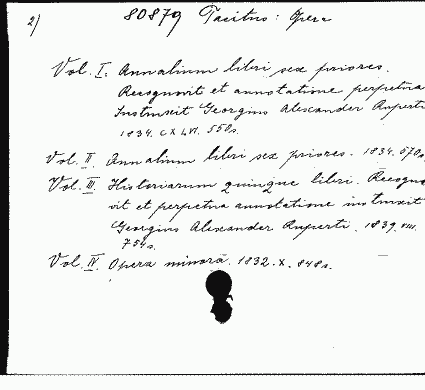 2) 80879 Tacitus: Opera
Vol. I. Annalium libri sex priores.
Recognovit et annotatione perpetua
Instruxit Georgius Alexander Ruperti
1834. CXLVI. 550s.
Vol. II. Annalium libri sex priores. 1834. 570s.
Vol. III. Historiarum quinque libri. Recogno
vit et perpetua annotatione instruxit
Georgius Alexander Ruperti. 1839. VIII.
754s.
Vol. IV. Opera minora. 1832. X. 848s.